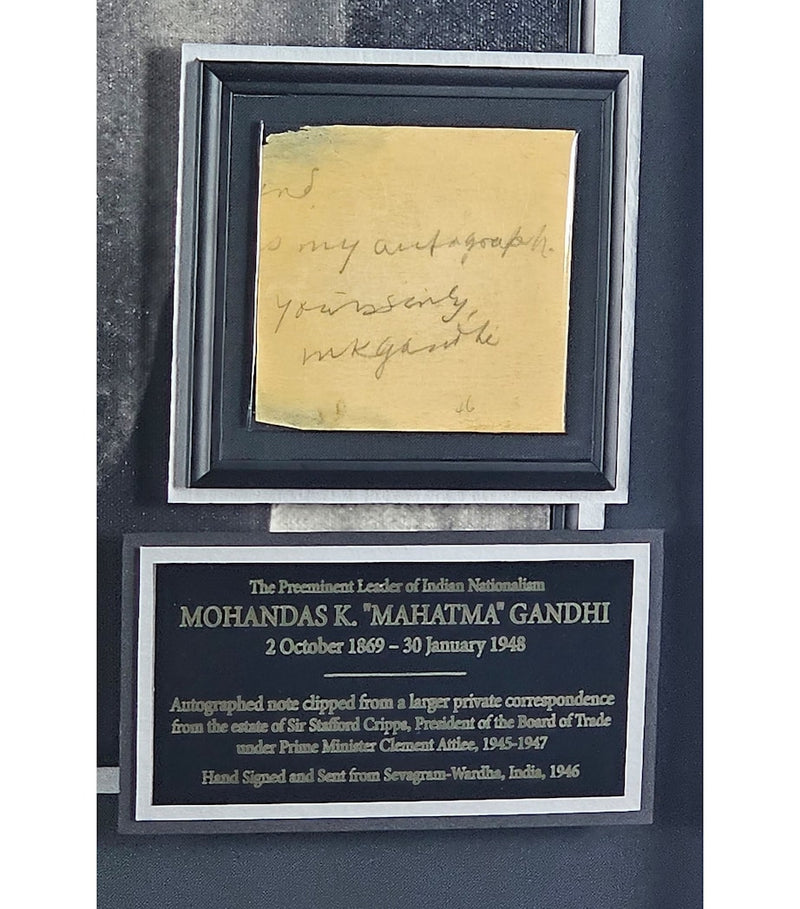 nd
s my autograph.
Yours sinly,
mkgandhi
46
The Preeminent Leader of Indian Nationalism
MOHANDAS K. "MAHATMA" GANDHI
2 October 1869 – 30 January 1948
Autographed note clipped from a larger private correspondence
from the estate of Sir Stafford Cripps, President of the Board of Trade
under Prime Minister Clement Attlee, 1945-1947
Hand Signed and Sent from Sevagram-Wardha, India, 1946